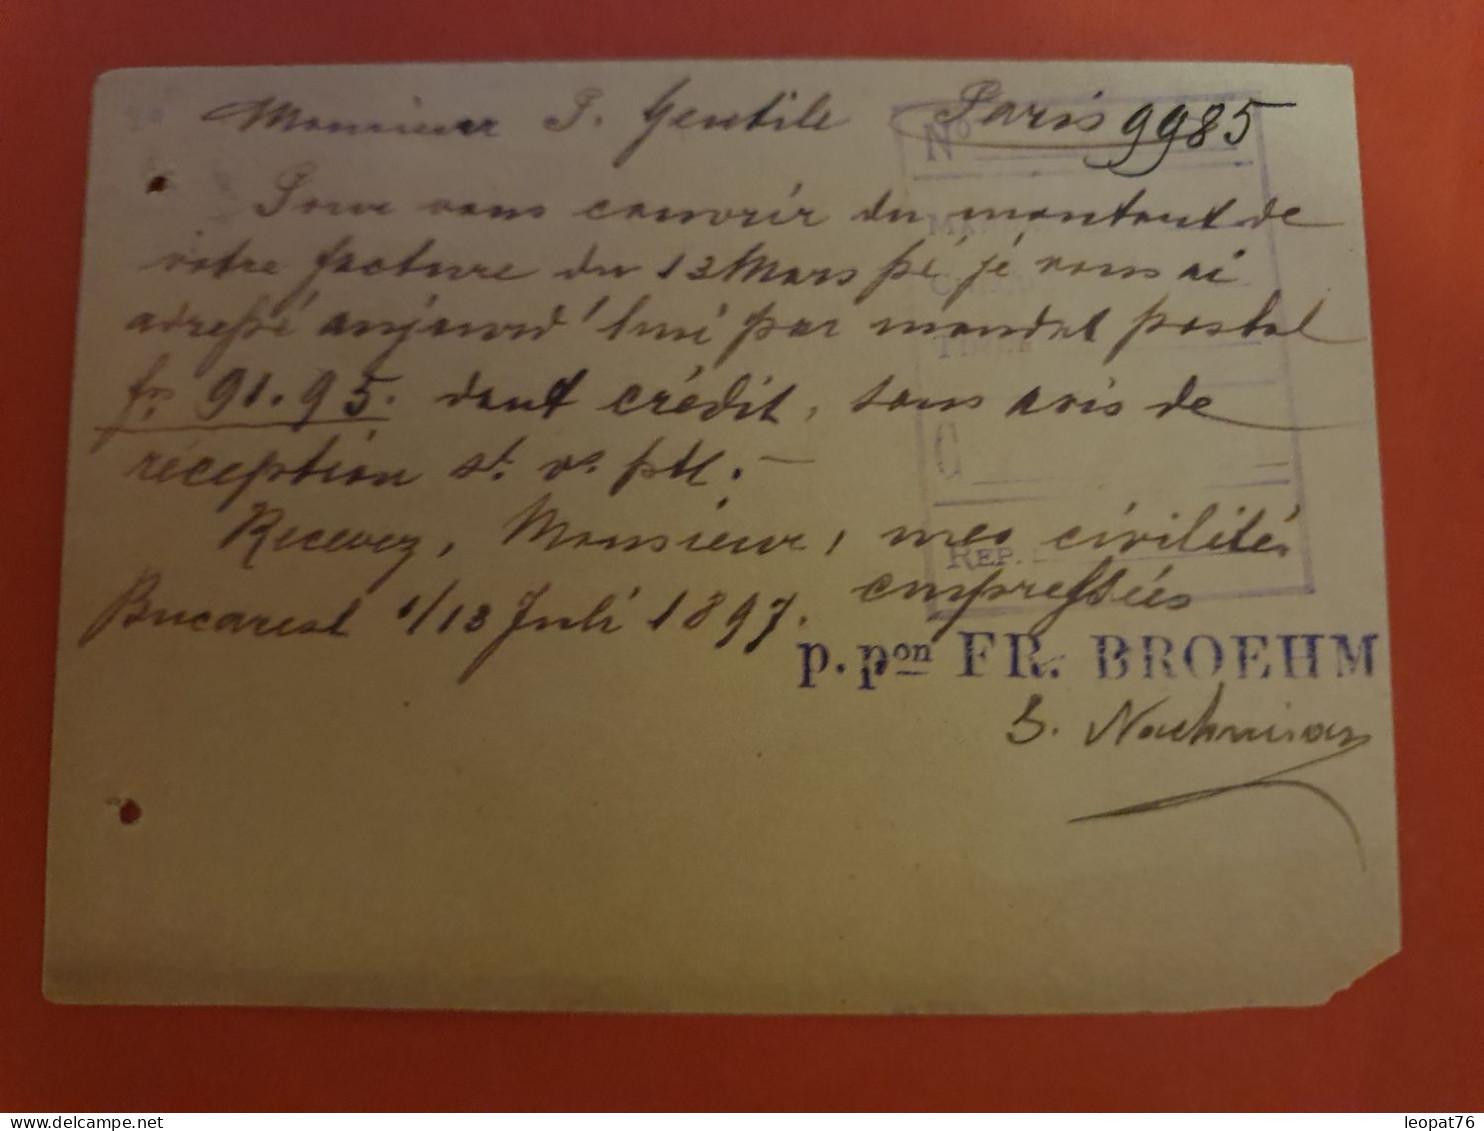 Monsieur P. Gentile Paris
No 9985
Pour vous couvrir du montant de
votre facture du 13 Mars pé, je vous ai
adressé aujourd'hui par mandat postal
frs 91.95. dont crédit, sans avis de
réception st. vs. ptl. —
Recevez, Monsieur, mes civilités
REP.
empressées
Bucarest 1/13 Juli 1897.
p. pon FR. BROEHM
leopat76